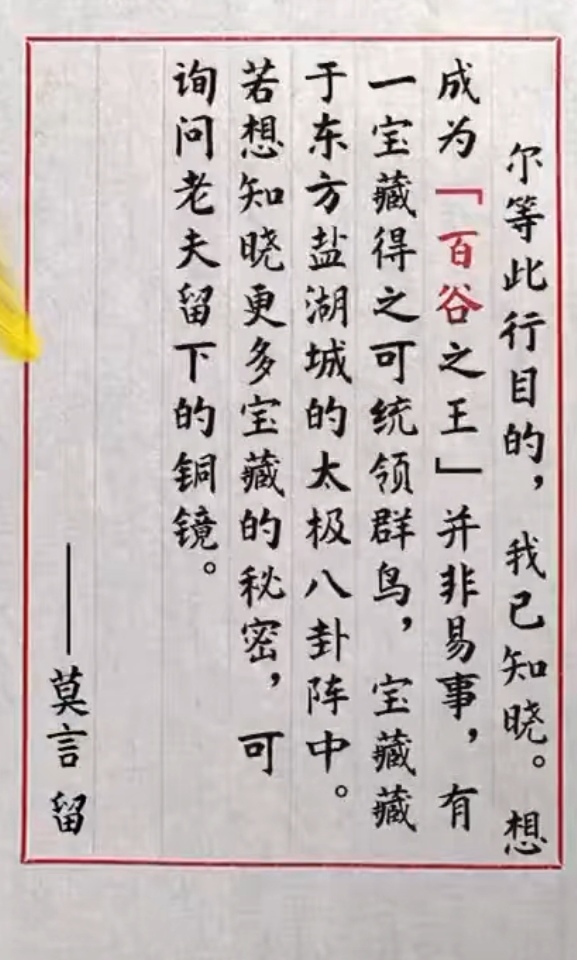 尔等此行目的，我已知晓。想
成为「百谷之王」并非易事，有
一宝藏得之可统领群鸟，宝藏藏
于东方盐湖城的太极八卦阵中。
若想知晓更多宝藏的秘密，可
询问老夫留下的铜镜。
——莫言留